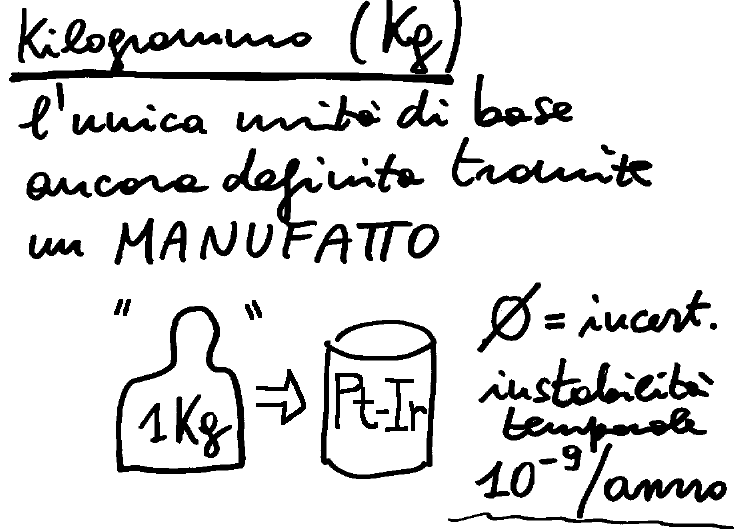 Kilogrammo (Kg)
l'unica unità di base
ancora definita tramite
un MANUFATTO
" 1Kg " ⇒ Pt-Ir
Ø = incert.
instabilità
temporale
10⁻⁹/anno